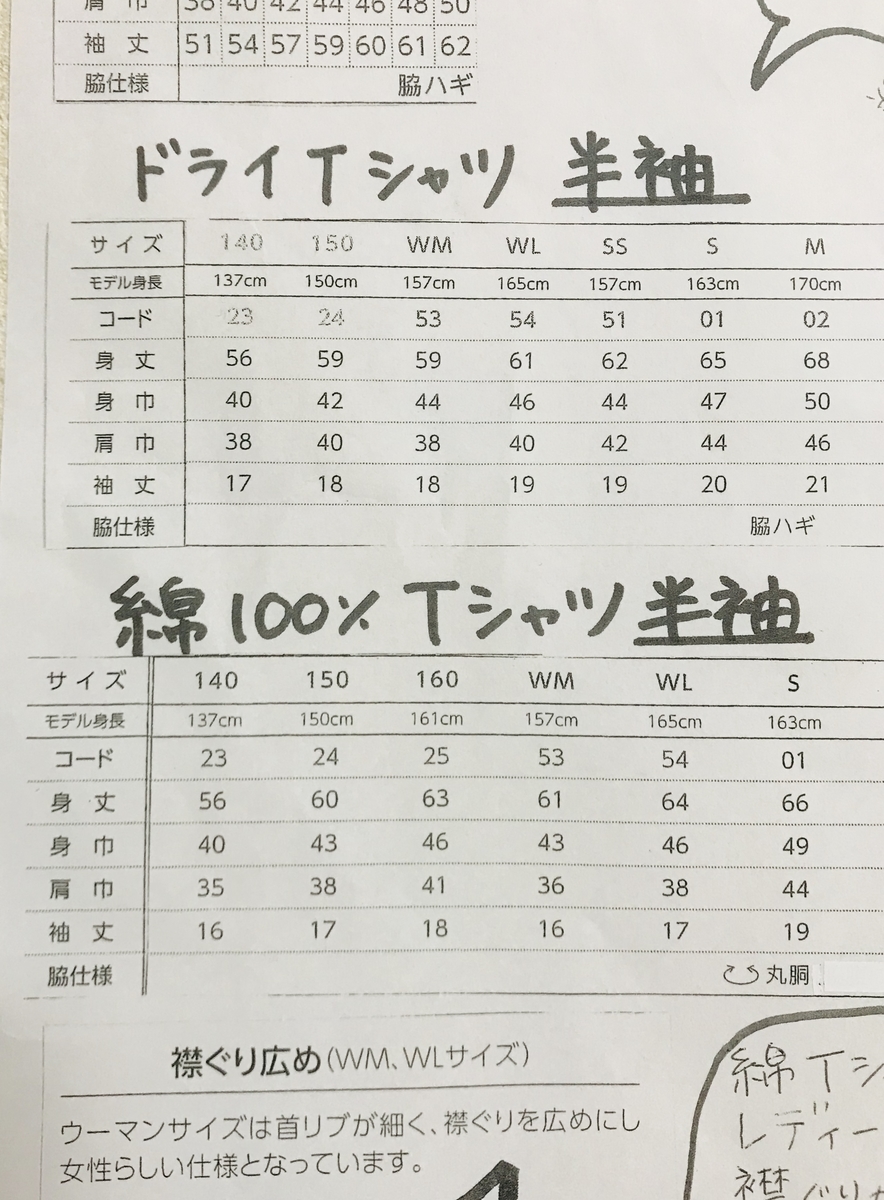 肩 巾 38 40 42 44 46 48 50
袖 丈 51 54 57 59 60 61 62
脇仕様 脇ハギ
ドライTシャツ 半袖
サイズ 140 150 WM WL SS S M
モデル身長 137cm 150cm 157cm 165cm 157cm 163cm 170cm
コード 23 24 53 54 51 01 02
身 丈 56 59 59 61 62 65 68
身 巾 40 42 44 46 44 47 50
肩 巾 38 40 38 40 42 44 46
袖 丈 17 18 18 19 19 20 21
脇仕様 脇ハギ
綿100% Tシャツ半袖
サイズ 140 150 160 WM WL S
モデル身長 137cm 150cm 161cm 157cm 165cm 163cm
コード 23 24 25 53 54 01
身 丈 56 60 63 61 64 66
身 巾 40 43 46 43 46 49
肩 巾 35 38 41 36 38 44
袖 丈 16 17 18 16 17 19
脇仕様 丸胴
襟ぐり広め(WM、WLサイズ)
ウーマンサイズは首リブが細く、襟ぐりを広めにし
女性らしい仕様となっています。
綿Tシ
レディー
襟ぐり